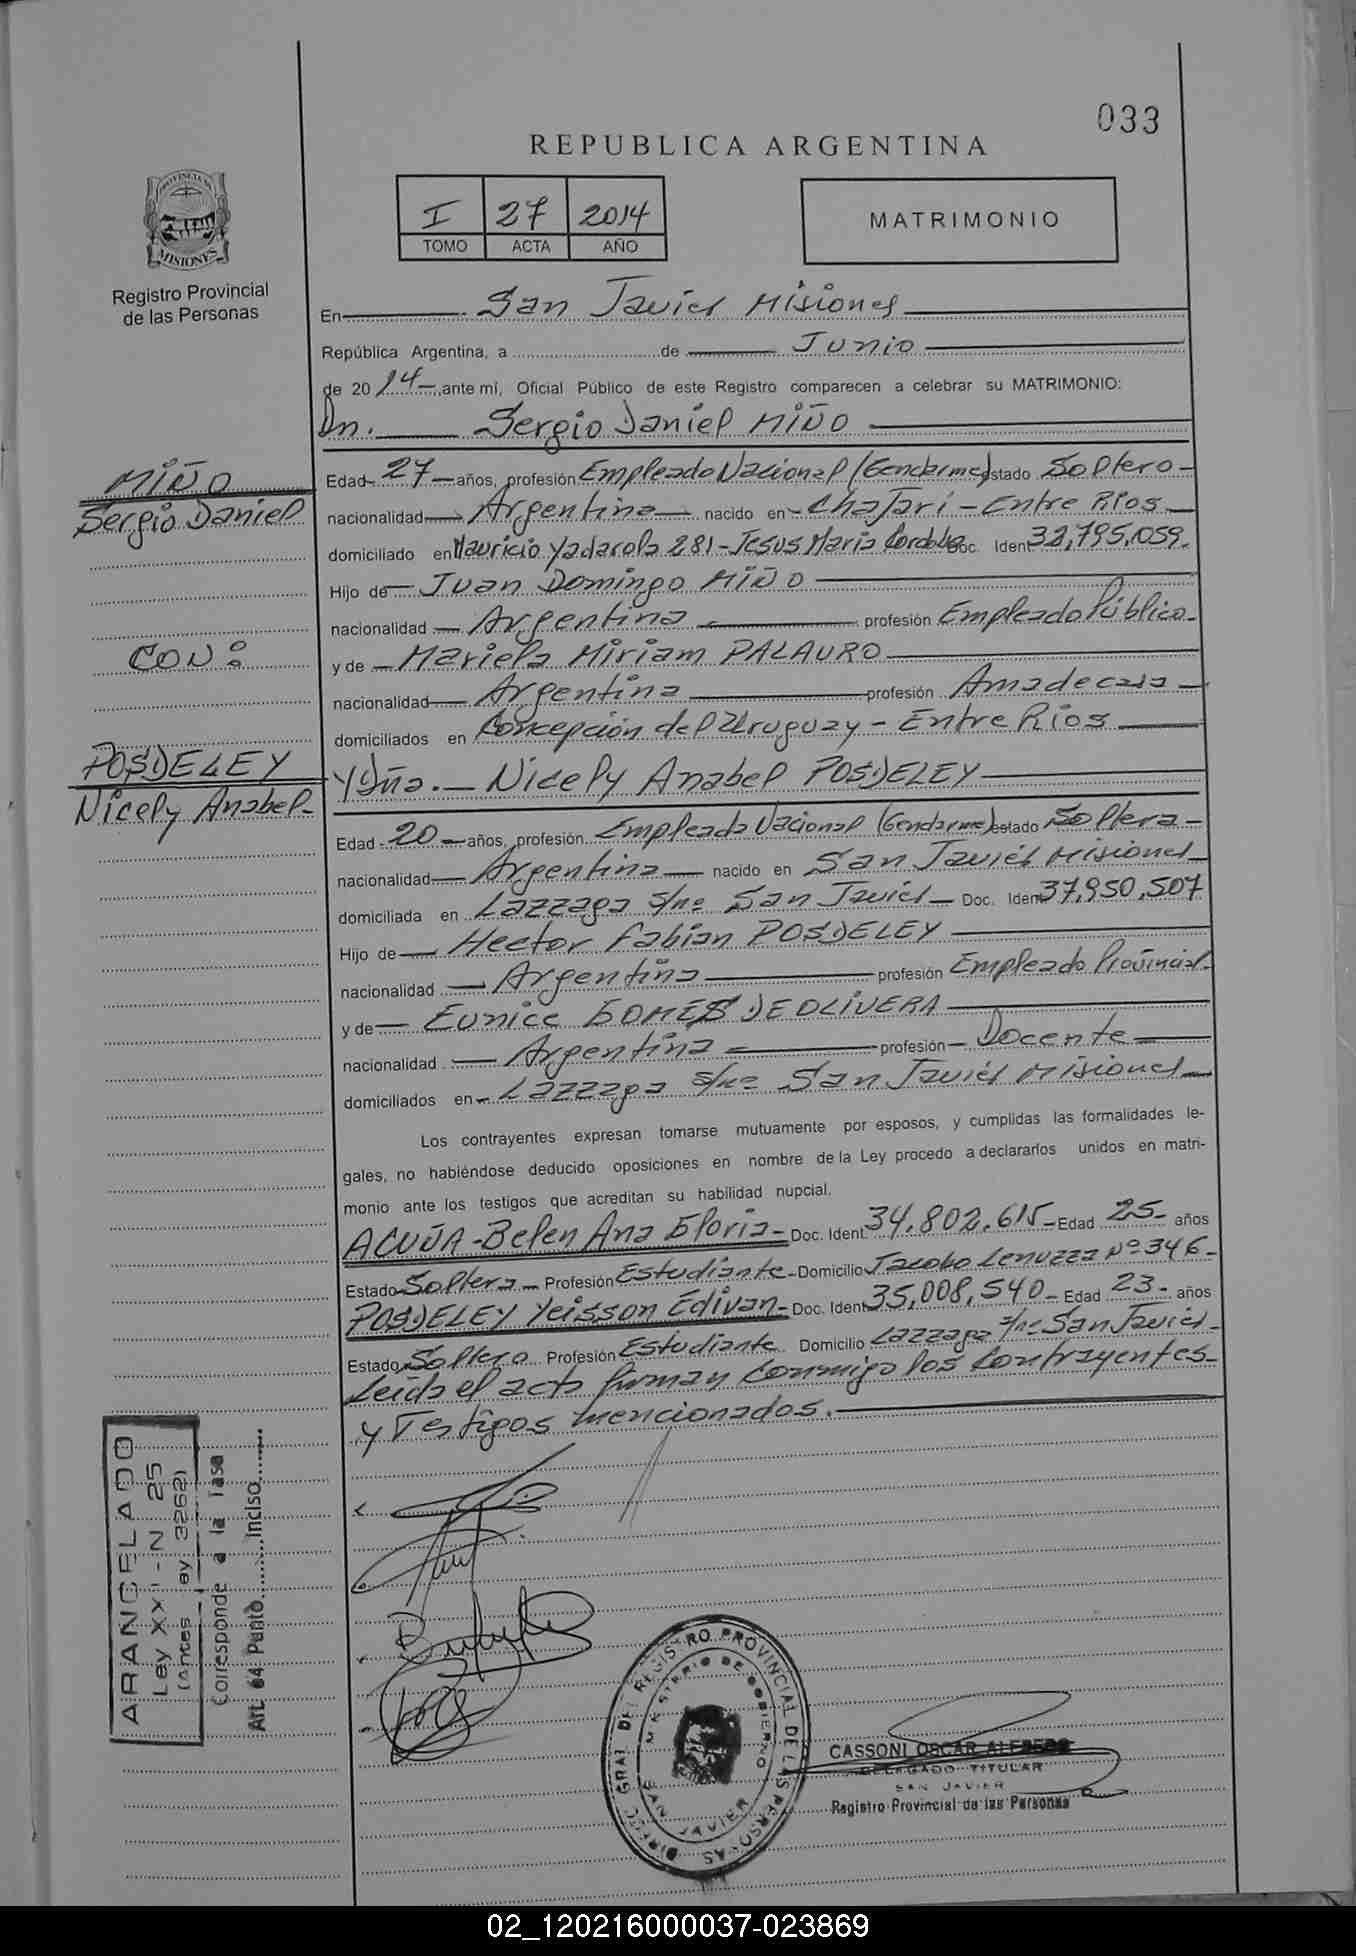 033
REPUBLICA ARGENTINA
I 27 2014
TOMO ACTA AÑO
MATRIMONIO
PROVINCIA DE
MISIONES
Registro Provincial
de las Personas
En San Javier Misiones
República Argentina, a de Junio
de 2014 ,ante mí, Oficial Público de este Registro comparecen a celebrar su MATRIMONIO:
Dn. Sergio Daniel MIÑO
MIÑO
Sergio Daniel
Edad 27 años, profesión Empleado Nacional (Gendarme) estado Soltero
nacionalidad Argentina nacido en Chajarí - Entre Ríos
domiciliado en Mauricio Yadarola 281 - Jesus María Cordoba Doc. Ident 32,795,059.
Hijo de Juan Domingo MIÑO
nacionalidad Argentina profesión Empleado Público
CON:
y de Mariela Miriam PALAURO
nacionalidad Argentina profesión Ama de casa
domiciliados en Concepción del Uruguay - Entre Ríos
POSDELEY
Nicely Anabel
Y Dña. Nicely Anabel POSDELEY
Edad 20 años, profesión Empleada Nacional (Gendarme) estado Soltera
nacionalidad Argentina nacido en San Javier Misiones
domiciliada en Lazzaga s/nº San Javier Doc. Ident 37,950,507
Hijo de Hector Fabian POSDELEY
nacionalidad Argentina profesión Empleado Provincial
y de Eunice GOMES DE OLIVERA
nacionalidad Argentina profesión Docente
domiciliados en Lazzaga s/nº San Javier Misiones
Los contrayentes expresan tomarse mutuamente por esposos, y cumplidas las formalidades le-
gales, no habiéndose deducido oposiciones en nombre de la Ley procedo a declararlos unidos en matri-
monio ante los testigos que acreditan su habilidad nupcial.
ACUÑA - Belen Ana Gloria - Doc. Ident. 34,802,615 - Edad 25 - años
Estado Soltera - Profesión Estudiante - Domicilio Jacobo Lenuzza Nº 346 -
POSDELEY Yeisson Edivan - Doc. Ident 35,008,540 - Edad 23 - años
Estado Soltero Profesión Estudiante Domicilio Lazzaga s/nº San Javier -
Leída el acta firman conmigo los contrayentes
y Testigos mencionados.
ARANCELADO
Ley XXI - N 25
(Antes Ley 3262)
Corresponde a la Tasa
Art. 64 Punto Inciso
DIREC. GRAL. DEL REGISTRO PROVINCIAL DE LAS PERSONAS
MINISTERIO DE GOBIERNO
SAN JAVIER
CASSONI OSCAR ALFREDO
DELEGADO TITULAR
SAN JAVIER
Registro Provincial de las Personas
02_120216000037-023869